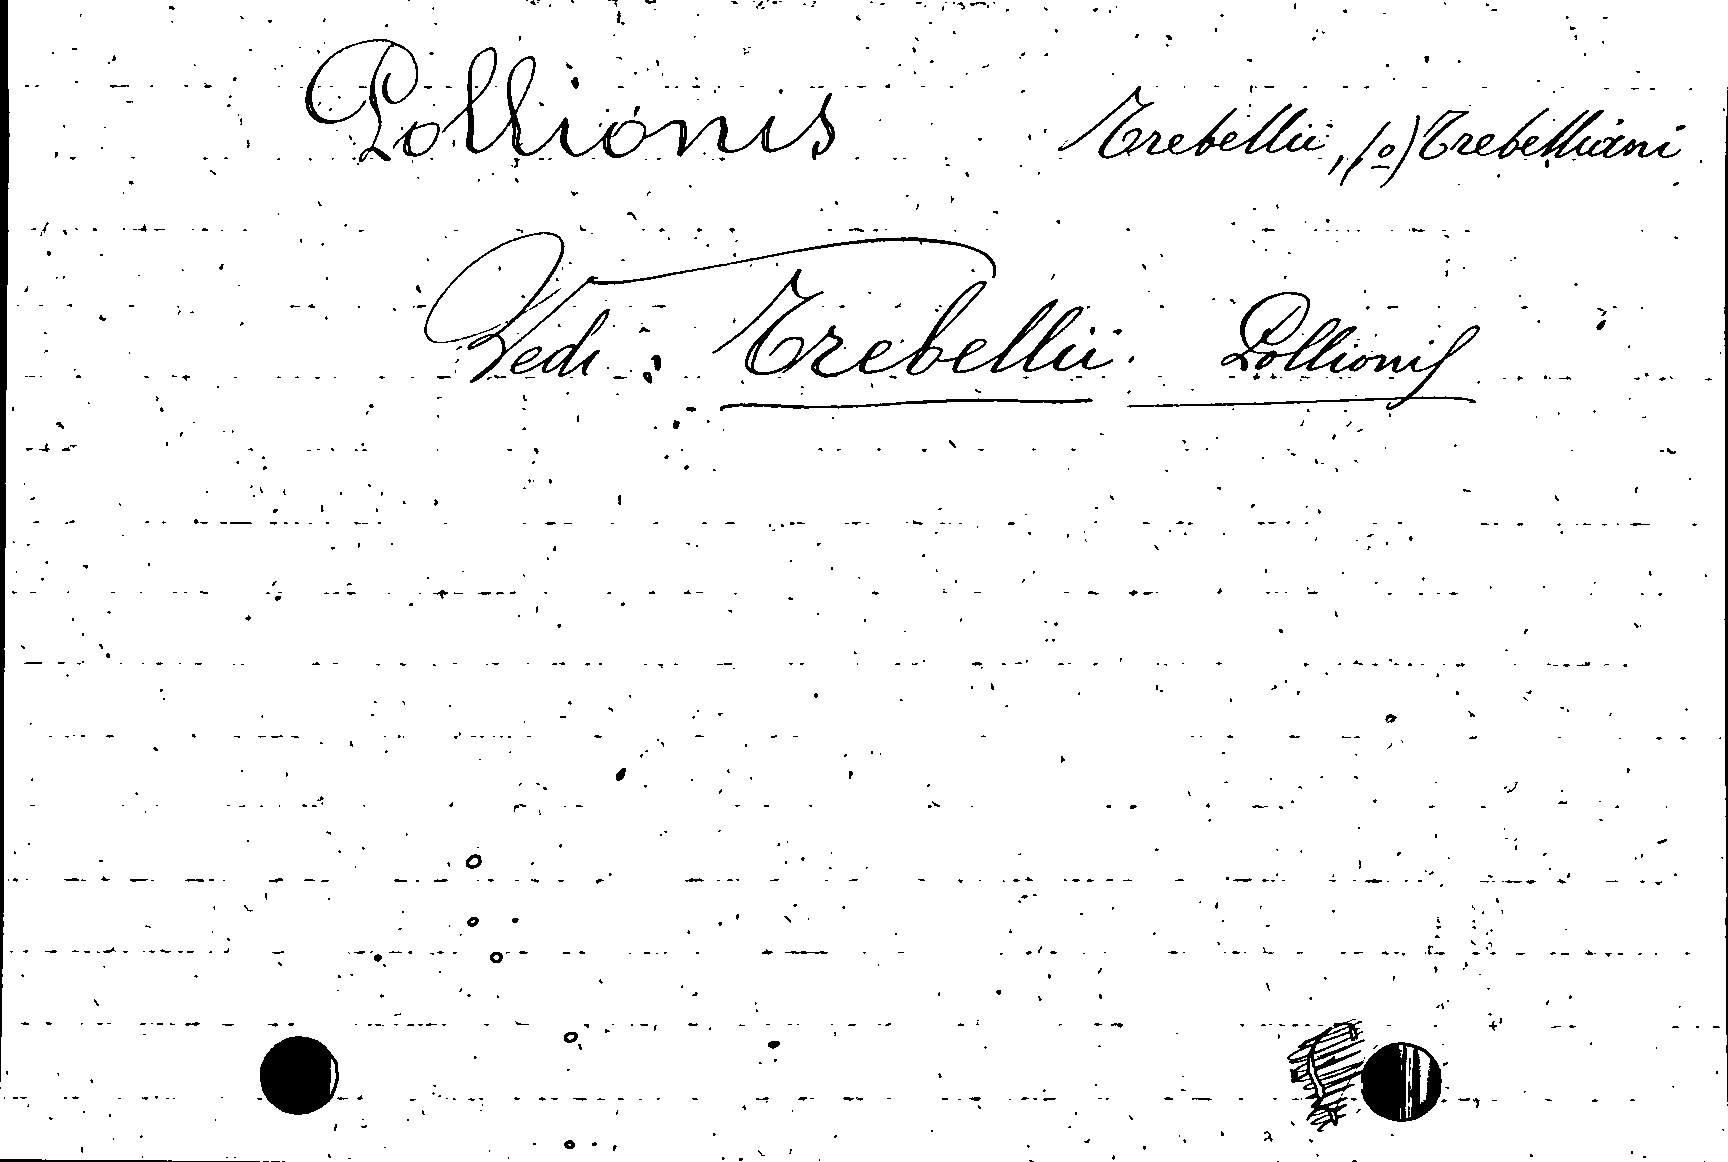 Pollionis Trebellii, (o) Trebelliani
Vedi: Trebellii Pollionis